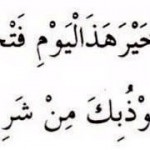 خَيْرَ هَذَالْيَوْمِ فَتْحَ
وْذُبِكَ مِنْ شَرِ